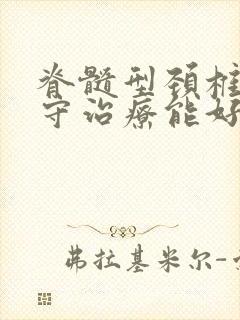 脊髓型颈椎
守治疗能好
弗拉基米尔-